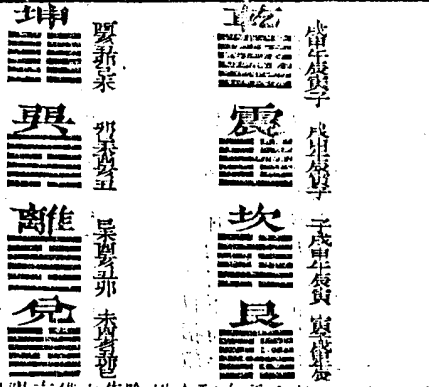 乾
戌申午辰寅子
震
戌申午辰寅子
坎
子戌申午辰寅
艮
寅子戌申午辰
坤
酉亥丑卯巳未
巽
卯巳未酉亥丑
離
巳未酉亥丑卯
兌
未酉亥丑卯巳